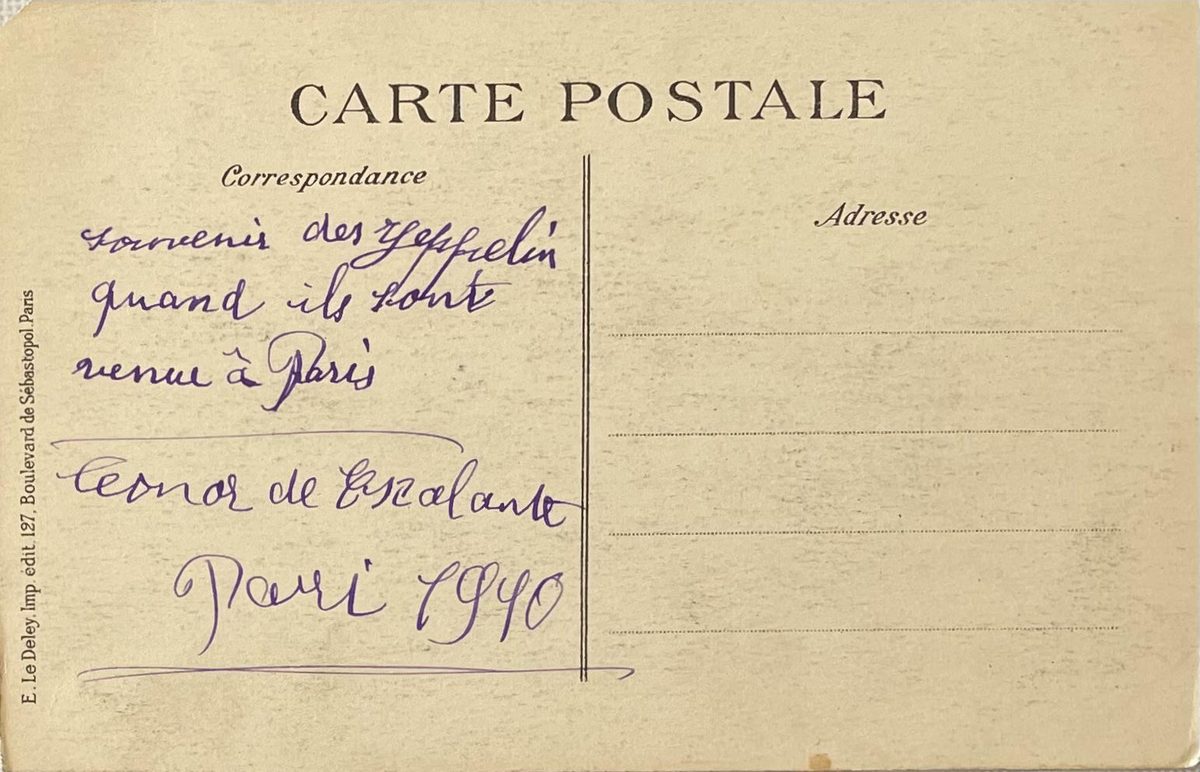 CARTE POSTALE
Correspondance
souvenir des Zeppelin
quand ils sont
venue à Paris
Leonor de Escalante
Pari 1940
Adresse
E. Le Deley, Imp. édit. 127, Boulevard de Sébastopol. Paris